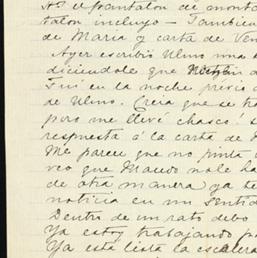 el pantalon de mont
talon incluyo — Tambien
de Maria y carta de Ven
Ayer escribió Ulmo una
diciendole que
Fui en la noche previo
de Ulmo. Creia que se tra
pero me llevé chasco! s
respuesta á la carta de
Me parece que no pinta
veo que Maudo no le ha
de otra manera ya te
noticia en un sentid
Dentro de un rato debo
Ya estoy trabajando pa
Ya está lista la escalera